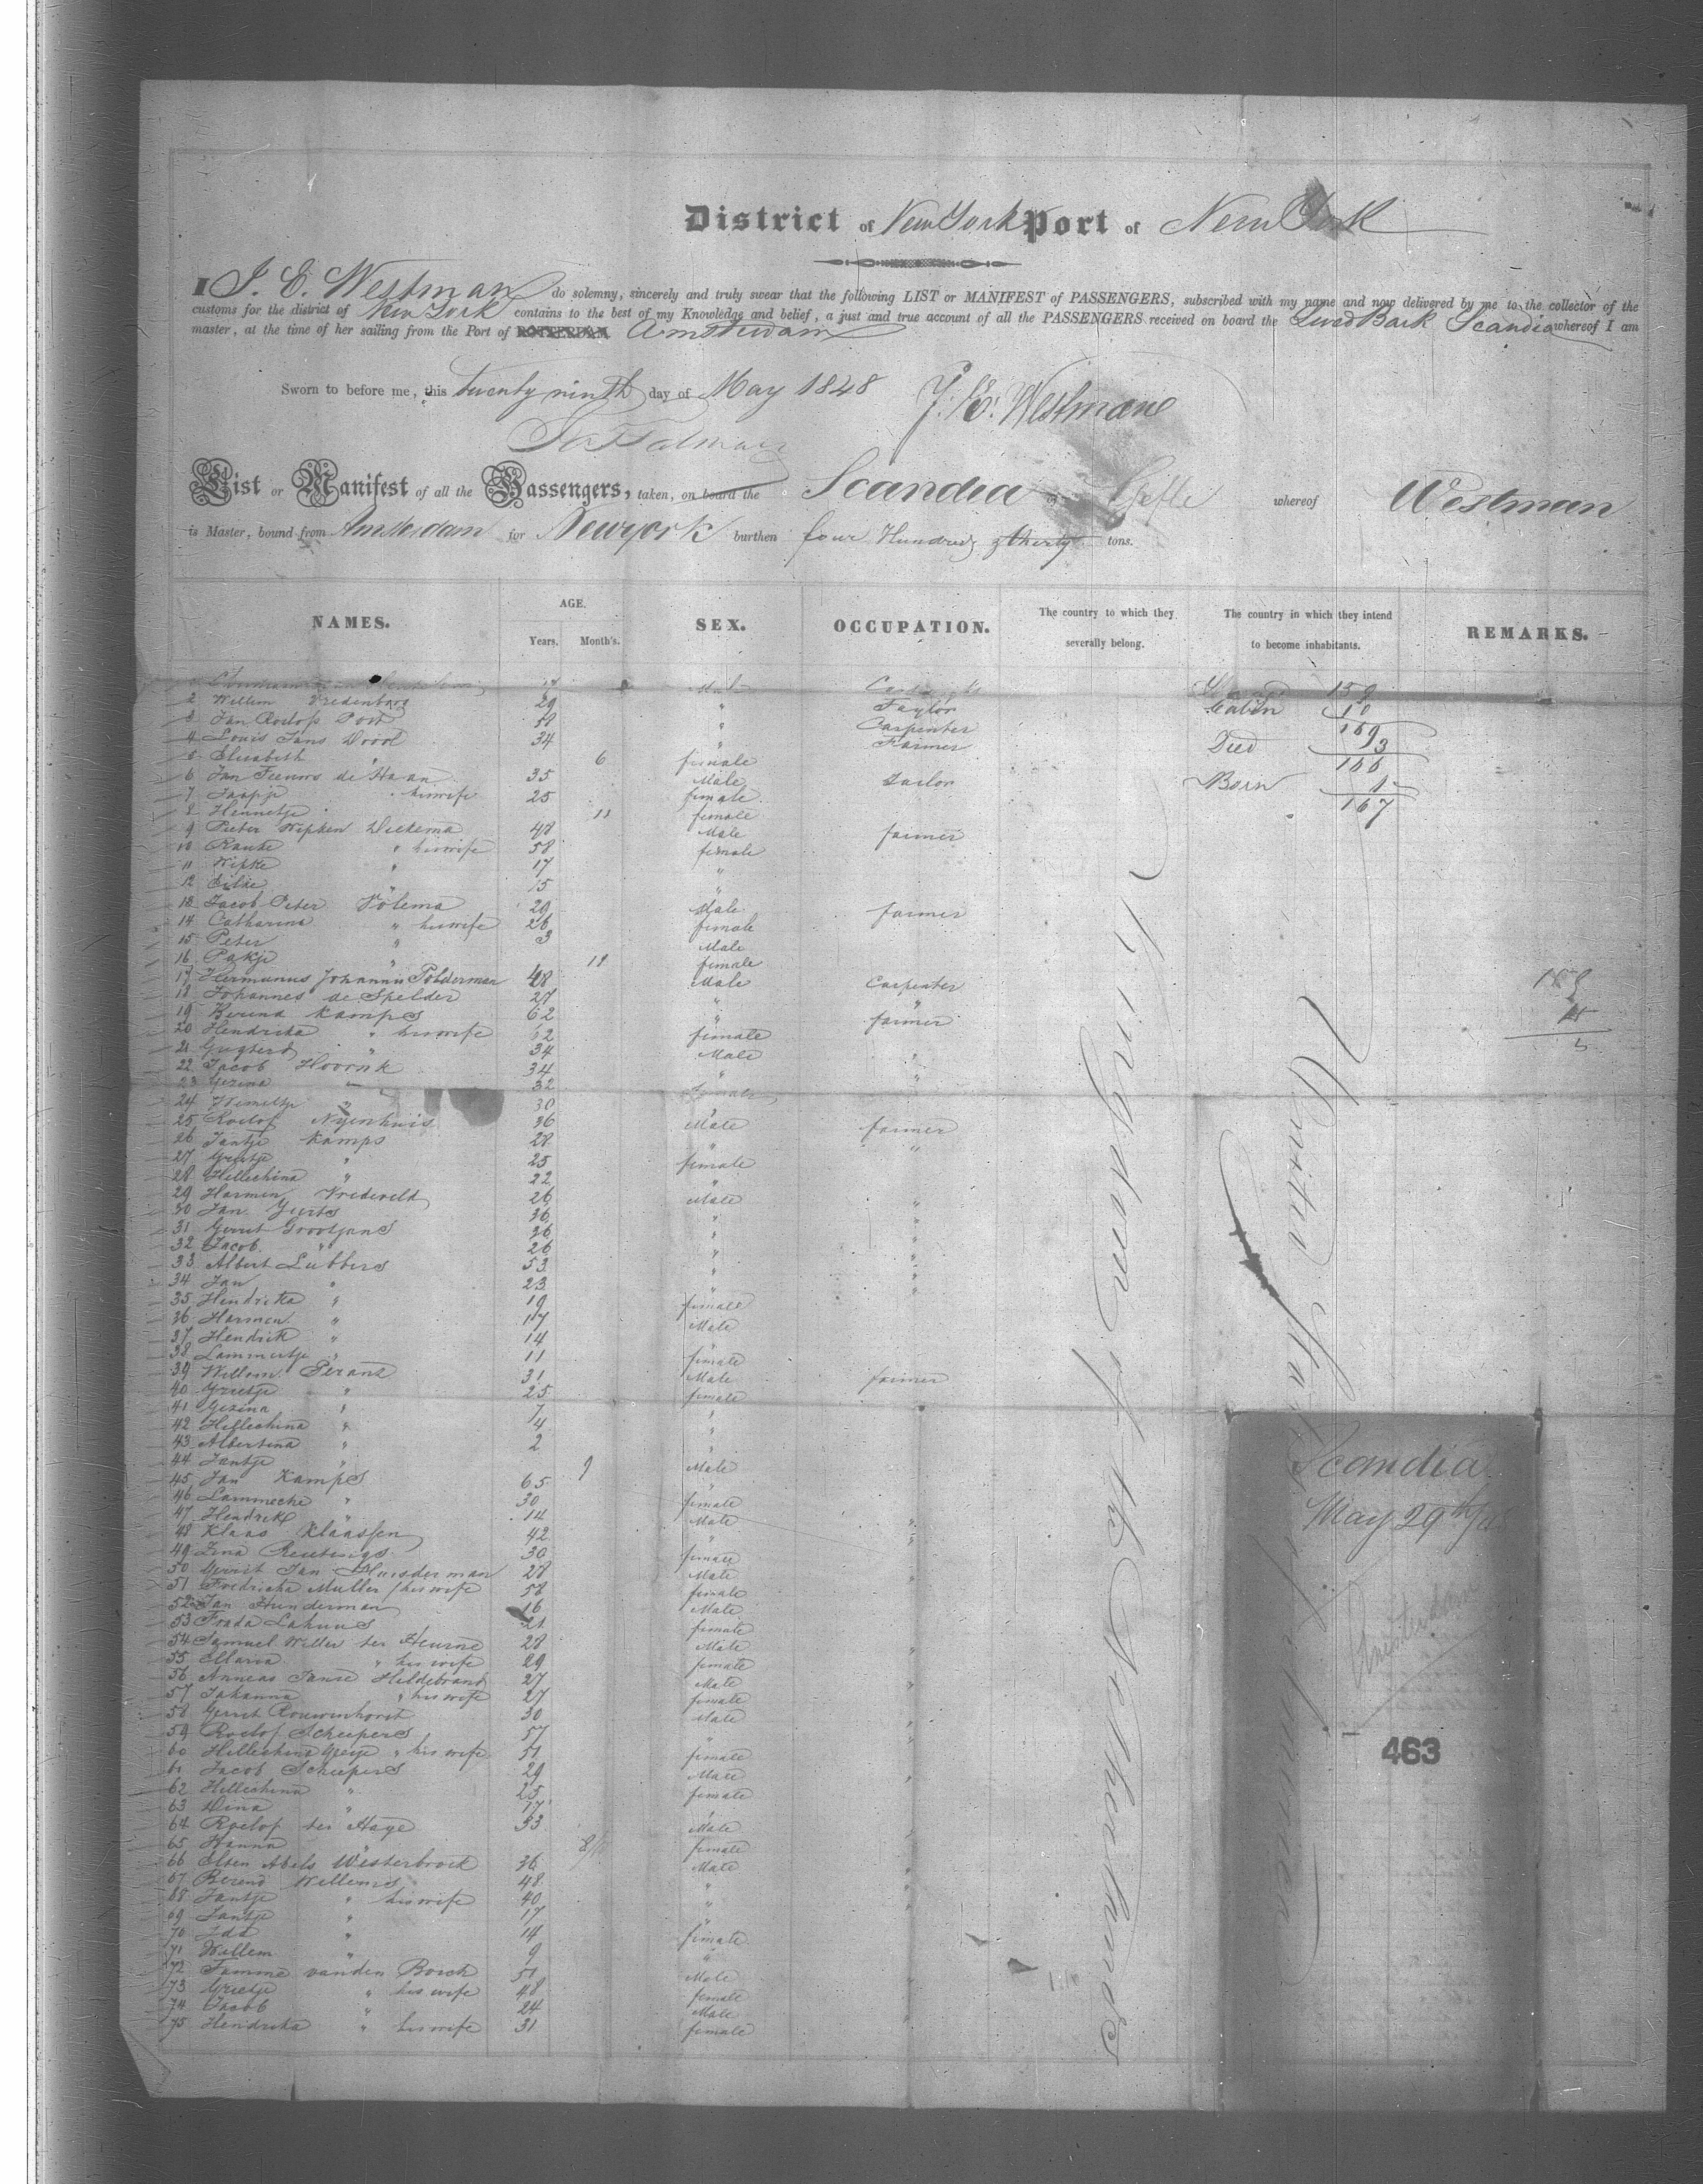 District of New York Port of New York
I J. E. Westman do solemny, sincerely and truly swear that the following LIST or MANIFEST of PASSENGERS, subscribed with my name and now delivered by me to the collector of the
customs for the district of New York contains to the best of my Knowledge and belief, a just and true account of all the PASSENGERS received on board the Swed Bark Scandia whereof I am
master, at the time of her sailing from the Port of ROTTERDAM Amsterdam
Sworn to before me, this twenty ninth day of May 1848 J. E. Westman
List or Manifest of all the Passengers, taken, on board the Scandia of Gefle whereof Westman
is Master, bound from Amsterdam for Newyork burthen four Hundred & thirty tons.
NAMES. AGE. Years. Month's. SEX. OCCUPATION. The country to which they severally belong. The country in which they intend to become inhabitants. REMARKS.
2 Willem Vredenburg 29 " Taylor Cabin 10
3 Jan Roelofs Post 58 " Carpenter 169
4 Louis Jans Dood 34 " Farmer Died 3
5 Elisabeth " 6 female 166
6 Jan de Haan 35 Male Tailor Born 1
7 Jaapje " his wife 25 female 167
8 11 female
9 Pieter Wepken Diekema 48 Male farmer
10 Rauke " his wife 58 female
11 Wepke " 17 "
12 Eilke " 15 "
13 Jacob Peter Tolema 29 Male farmer
14 Catharina " his wife 26 female
15 Peter " 3 Male
16 Pakje " 11 female
17 Hermanus Johannes Polderman 48 Male Carpenter
18 Johannes de Spelder 27 " "
19 Berend Kamps 62 " farmer
20 Hendrika " his wife 62 female
21 " 34 Male "
22 Jacob Hoornk 34 " "
23 Gezina " 32 Female
24 " 30 "
25 Roelof Nyenhuis 36 Male farmer
26 Jantje Kamps 28 " "
27 Geertje " 25 female
28 Hillechina " 22 "
29 Harmen Vredeveld 26 Male "
30 Jan Geerts 36 " "
31 Gerrit Grootjans 36 " "
32 Jacob " 26 " "
33 Albert Lubbers 53 " "
34 Jan " 23 " "
35 Hendrika " 19 female
36 Harmen " 17 Male
37 Hendrik " 14 "
38 Lammertje " 11 female
39 Willem Perans 31 Male farmer
40 Grietje " 25 female
41 Gezina " 7 "
42 Hillechina " 4 "
43 Albertina " 2 "
44 Jantje " 9 Male
45 Jan Kamps 65 "
46 Lammeche " 30 female
47 Hendrik " 14 Male "
48 Klaas Klaassen 42 " "
49 Zena 30 female
50 Gerrit Jan Hunderman 28 Male "
51 Fredricka Muller / his wife 58 female
52 Jan Hunderman 16 Male
53 Frada Lahuus 21 female
54 Samuel Willer ter Heurne 28 Male "
55 Maria " his wife 29 female
56 Anneas Janse Hildebrand 27 Male "
57 Johanna " his wife 27 female
58 Gerrit Rouwenhorst 30 Male "
59 Roelof Scheepers 57 " "
60 Hillechina " his wife 51 female
61 Jacob Scheepers 29 Male "
62 Hillechina " 25 female
63 Dina " 17 "
64 Roelof ter Haye 33 Male "
65 Hanna " female
66 Elsen Abels Westerbroek 36 Male "
67 Berend Willems 48 " "
68 Jantje " his wife 40 " "
69 Jantje " 17 "
70 Ida " 14 female
71 Willem " 9 "
72 Tamme vanden Bosch 51 Male "
73 Grietje " his wife 48 female
74 Jacob " 24 Male
75 Hendrika " his wife 31 female "
Kingdom of the Netherlands
United States of
Scandia
May 29th/48
Amsterdam
463